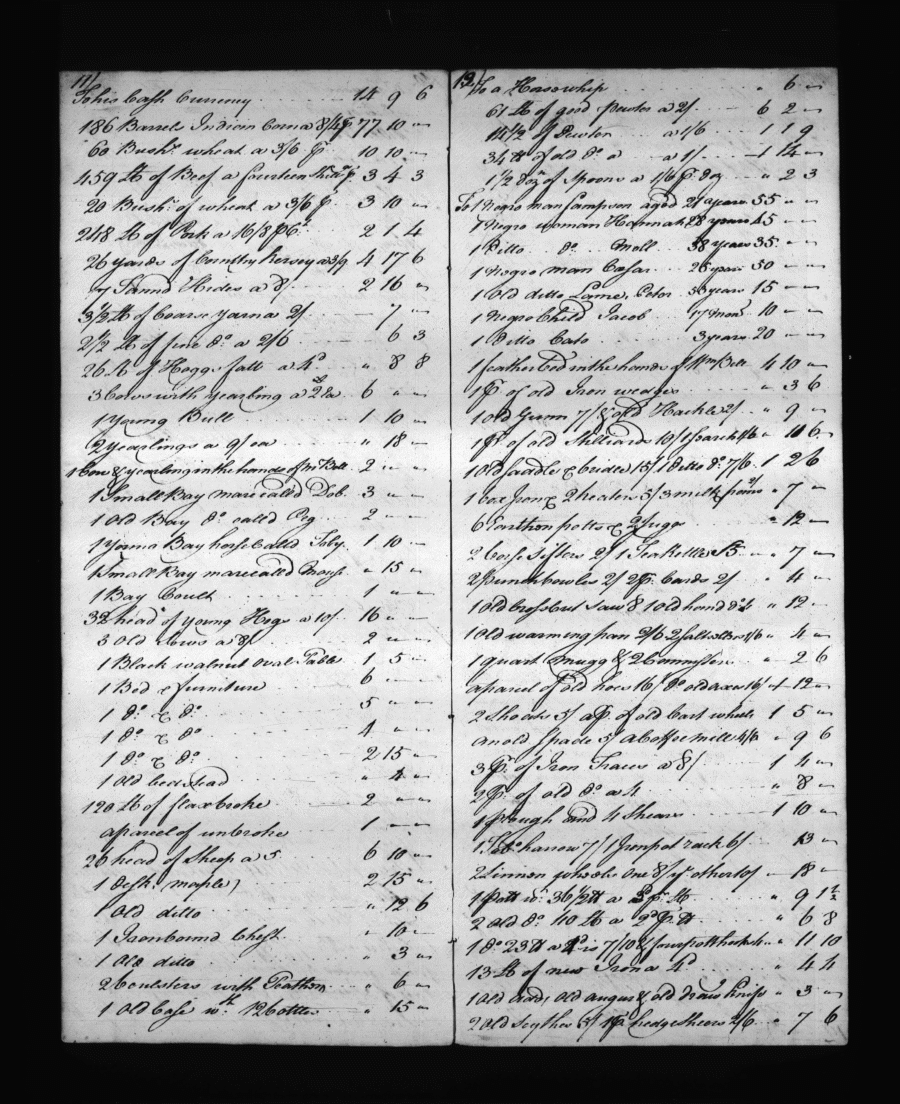 11/
To his Cash Currency 14 9 6
186 Barrels Indian Corn a 8/4 p 77 10 "
60 Bush.s wheat a 3/6 p 10 10 "
459 lb of Beef a fourteen p 3 4 3
20 Bush.s of wheat a 3/6 p 3 10 "
248 lb of Pork a 16/8 p 2 1 4
26 yards of Country kersey a 3/9 4 17 6
7 Tannd Hides a 8/ 2 16 "
3 1/2 lb of Coarse yarn a 2/ " 7 "
2 1/2 lb of fine do. a 2/6 6 3
26 lb of Hoggs fatt a 4d " 8 8
3 Cows with yearling a 6 " "
1 young Bull 1 10 "
2 yearlings a 9/ ea " 18 "
1 Cow & yearling in the hands of Bell 2 " "
1 Small Bay mare calld Deb 3 " "
1 Old Bay do. calld Peg 2 " "
1 young Bay horse calld Toby 1 10 "
1 Small Bay mare calld Mouse " 15 "
1 Bay Coult 1 " "
32 head of young Hogs a 10/ 16 " "
3 Old Sows a 8/ 2 " "
1 Black walnut oval Table 1 5 "
1 Bed & furniture 6 " "
1 do. & do. 5 " "
1 do. & do. 4 " "
1 do. & do. 2 15 "
1 Old bedstead " 4 "
120 lb of flax broke 2 " "
a parcel of unbroke 1 " "
26 head of Sheep a 5 6 10 "
1 desk maple) 2 15 "
1 Old ditto " 12 6
1 Iron bound Chest " 10 "
1 Old ditto " 3 "
2 boulsters with Feathers " 6 "
1 Old Case wth. 12 bottles " 15 "
12/
To a Horsewhip " 6 "
61 lb of good pewter a 2/ 6 2 "
14 1/2 of Pewter a 1/6 1 1 9
34 lb of old do. a a 1/ 1 14 "
1 1/2 doz of Spoons a 1/6 p. doz " 2 3
To 1 Negro man Sampson aged 21 years 55 " "
1 Negro woman Hannah 28 years 45 " "
1 Ditto do. Moll 38 years 35 " "
1 Negro man Cesar 26 years 50 " "
1 Old ditto Lame, Peter 53 years 15 " "
1 Negro Child Jacob 17 mon. 10 " "
1 Ditto Cato 3 years 20 " "
1 feather bed in the hands of Wm Bell 4 10 "
1 p. of old Iron wedges " 3 6
1 Old Gunn 7/ & old Hackle 2/ " 9 "
1 p. of old Stilliards 10/ " 11 6
1 Old saddle & bridle 15/ 1 Ditto do. 7/6 1 2 6
1 box Iron & 2 heaters 5/ 3 milk panns 2/ " 7 "
6 Earthen potts & 2 Juggs " 12 "
2 Corse Sifters 2/ 1 Tea Kettle 5 " 7 "
2 punch bowles 2/ 2 p. Cards 2/ " 4 "
1 old Cross Cut Saw 8 1 old hand do. 4 " 12 "
1 old warming pan 2/6 2 1/6 " 4 "
1 quart Mugg & " 2 6
a parcel of old hoes 16/ do. old axes 16/ 1 12 "
2 5/ a p. of old Cart wheels 1 5 "
an old Spade 5/ a Coffee mill 4/6 " 9 6
3 p. of Iron Traces a 8/ 1 4 "
2 p. of old do. a 4 " 8 "
1 plough and 4 Shears 1 10 "
1 harrow 7/ 1 Iron pot rack 6/ 13 "
2 Linnen wheels One 8/ ye other 10/ " 18 "
1 pott wt. 36 1/2 lb a 3d p. lb " 9 1 1/2
2 old do. 40 lb a 2d p. lb " 6 8
1 do. 23 lb a 4d is 7/10 & four pott hooks 4 " 11 10
13 lb of new Iron a 4d " 4 4
1 old adz, 1 old augur & old draw knife " 3 "
2 old Scythes 5/ 1 p. hedge Sheers 2/6 " 7 6